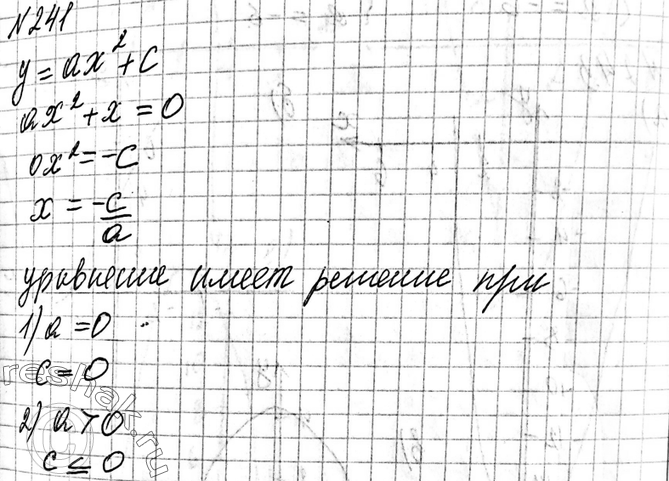 N241
y = ax² + c
ax² + x = 0
ax² = -c
x = -c/a
уравнение имеет решение при
1) a = 0
c = 0
2) a > 0
c ≤ 0
reshak.ru